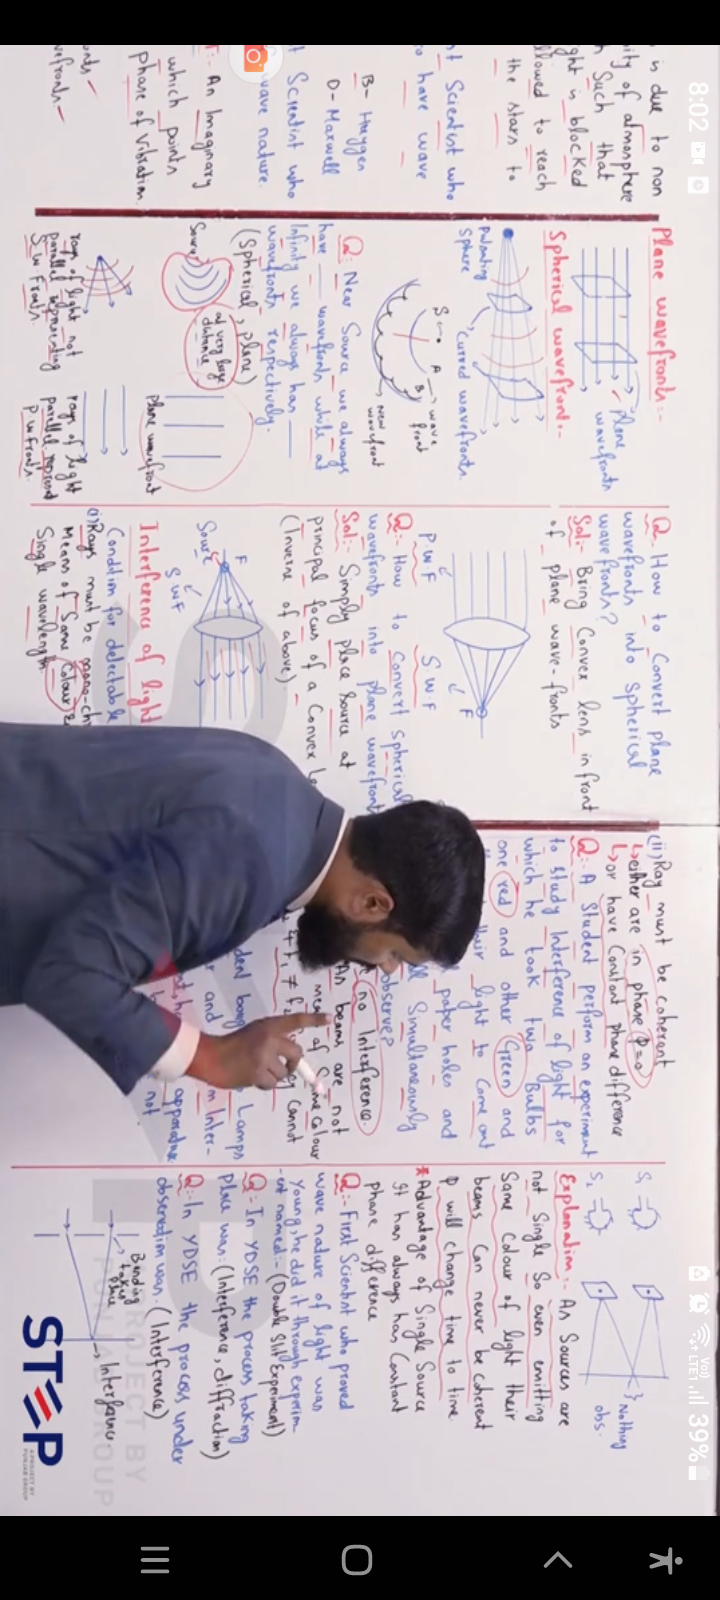 8:02
LTE1
39%
is due to non
ity of atmosphere
Such that
ght is blocked
llowed to reach
the stars to
t Scientist who
o have wave
B- Huygen
D- Maxwell
t Scientist who
wave nature.
:- An Imaginary
which points
phase of Vibration.
Plane wavefronts:-
Plane
wavefronts
Spherical wavefront:-
Pulsating
Sphere
Curved wavefronts
S
A
B
wave
front
New
wavefront
Q:- Near Source we always
have ___ wavefronts while at
Infinity we always has ___
wavefronts respectively.
(Spherical, plane)
Source
at very large
distance
Plane wavefront
rays of light not
parallel representing
S.W.Fronts.
rays of light
parallel represent
P.W.Fronts.
Q. How to Convert plane
wavefronts into Spherical
wavefronts?
Sol:- Bring Convex lens in front
of plane wave-fronts
P.W.F
S.W.F
F
Q:- How to Convert Spherical
wavefronts into plane wavefront
Sol:- Simply place Source at
principal focus of a Convex Le
(Inverse of above).
Source
F
S.W.F
Interference of light
Condition for detectable
(i) Rays must be mono-ch
Means of Same Colour &
Single wavelength
(ii) Ray must be coherent
↳ either are in phase Φ=0
↳ or have Constant phase difference
Q:- A Student perform an experiment
to study Interference of light for
which he took two Bulbs
one red and other Green and
their light to come out
paper holes and
ll Simultaneously
observe?
no Interference.
An beams are not
mean of Same Colour
cannot
Lamps
and
Inter-
apparatus
not
S₁
S₂
Nothing
obs.
Explanation:- As Sources are
not Single So even emitting
Same Colour of light their
beams Can never be coherent
Φ will change time to time
*Advantage of Single Source
It has always has Constant
phase difference
Q:- First Scientist who proved
wave nature of light was
Young, he did it through experim-
-ent named:- (Double Slit Experiment)
Q:- In YDSE the process taking
place was: (Interference, diffraction)
Q:- In YDSE the process under
observation was: (Interference)
Bending
taking
place
Interference
STEP
A PROJECT BY
PUNJAB GROUP